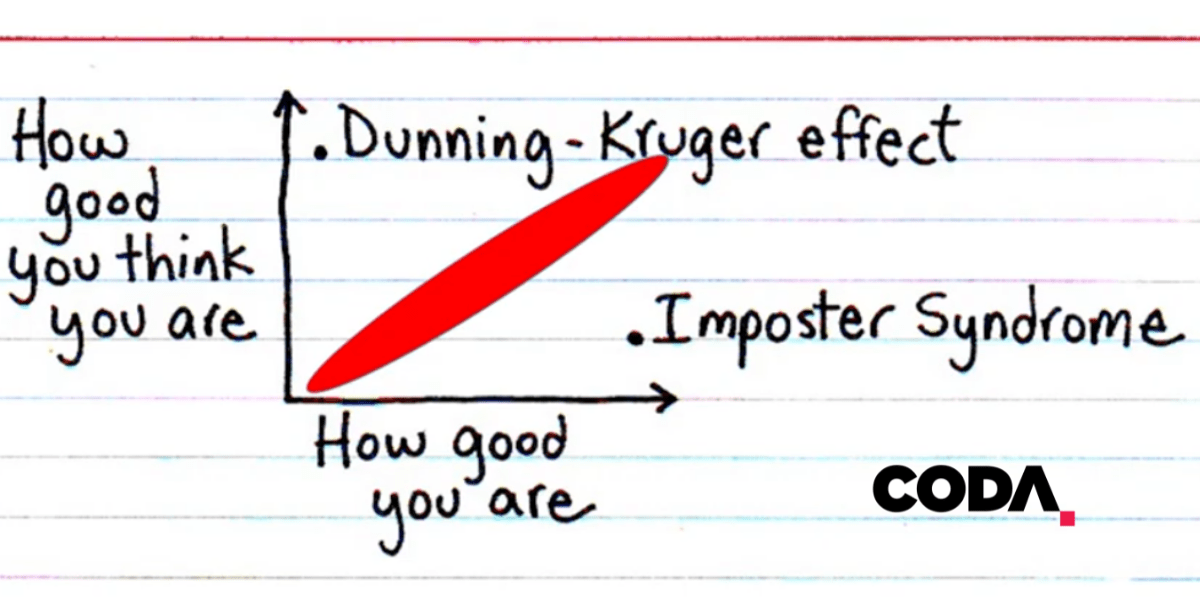 How
good
you think
you are
.Dunning-Kruger effect
.Imposter Syndrome
How good
you are
CODA.